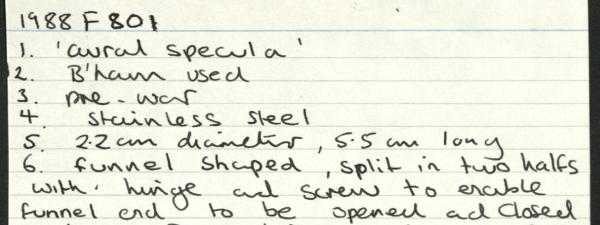 1988 F 801
1. 'aural specula'
2. B'ham used
3. pre-war
4. stainless steel
5. 2.2cm diameter, 5.5 cm long
6. funnel shaped, split in two halfs
with hinge and screw to enable
funnel end to be opened and closed